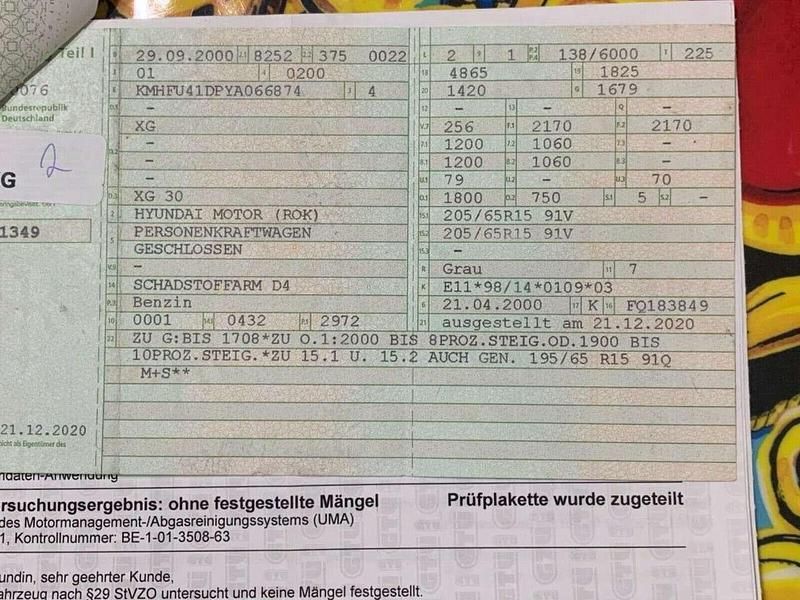 Teil I
0076
Bundesrepublik
Deutschland
2
G
1349
21.12.2020
B 29.09.2000 2.1 8252 2.2 375 0022
J 01 4 0200
E KMHFU41DPYA066874 3 4
D.1 –
XG
D.2 –
–
–
D.3 XG 30
2 HYUNDAI MOTOR (ROK)
5 PERSONENKRAFTWAGEN
GESCHLOSSEN
V.9 –
14 SCHADSTOFFARM D4
P.3 Benzin
10 0001 14.1 0432 P.1 2972
L 2 9 1 P.2 P.4 138/6000 T 225
18 4865 19 1825
20 1420 G 1679
12 – 13 – Q –
V.7 256 F.1 2170 F.2 2170
7.1 1200 7.2 1060 7.3 –
8.1 1200 8.2 1060 8.3 –
U.1 79 U.2 – U.3 70
O.1 1800 O.2 750 S.1 5 S.2 –
15.1 205/65R15 91V
15.2 205/65R15 91V
15.3 –
R Grau 11 7
K E11*98/14*0109*03
6 21.04.2000 17 K 16 FQ183849
21 ausgestellt am 21.12.2020
22 ZU G:BIS 1708*ZU O.1:2000 BIS 8PROZ.STEIG.OD.1900 BIS
10PROZ.STEIG.*ZU 15.1 U. 15.2 AUCH GEN. 195/65 R15 91Q
M+S**
ndaten-Anwendung
rsuchungsergebnis: ohne festgestellte Mängel Prüfplakette wurde zugeteilt
des Motormanagement-/Abgasreinigungssystems (UMA)
1, Kontrollnummer: BE-1-01-3508-63
undin, sehr geehrter Kunde,
ahrzeug nach §29 StVZO untersucht und keine Mängel festgestellt.